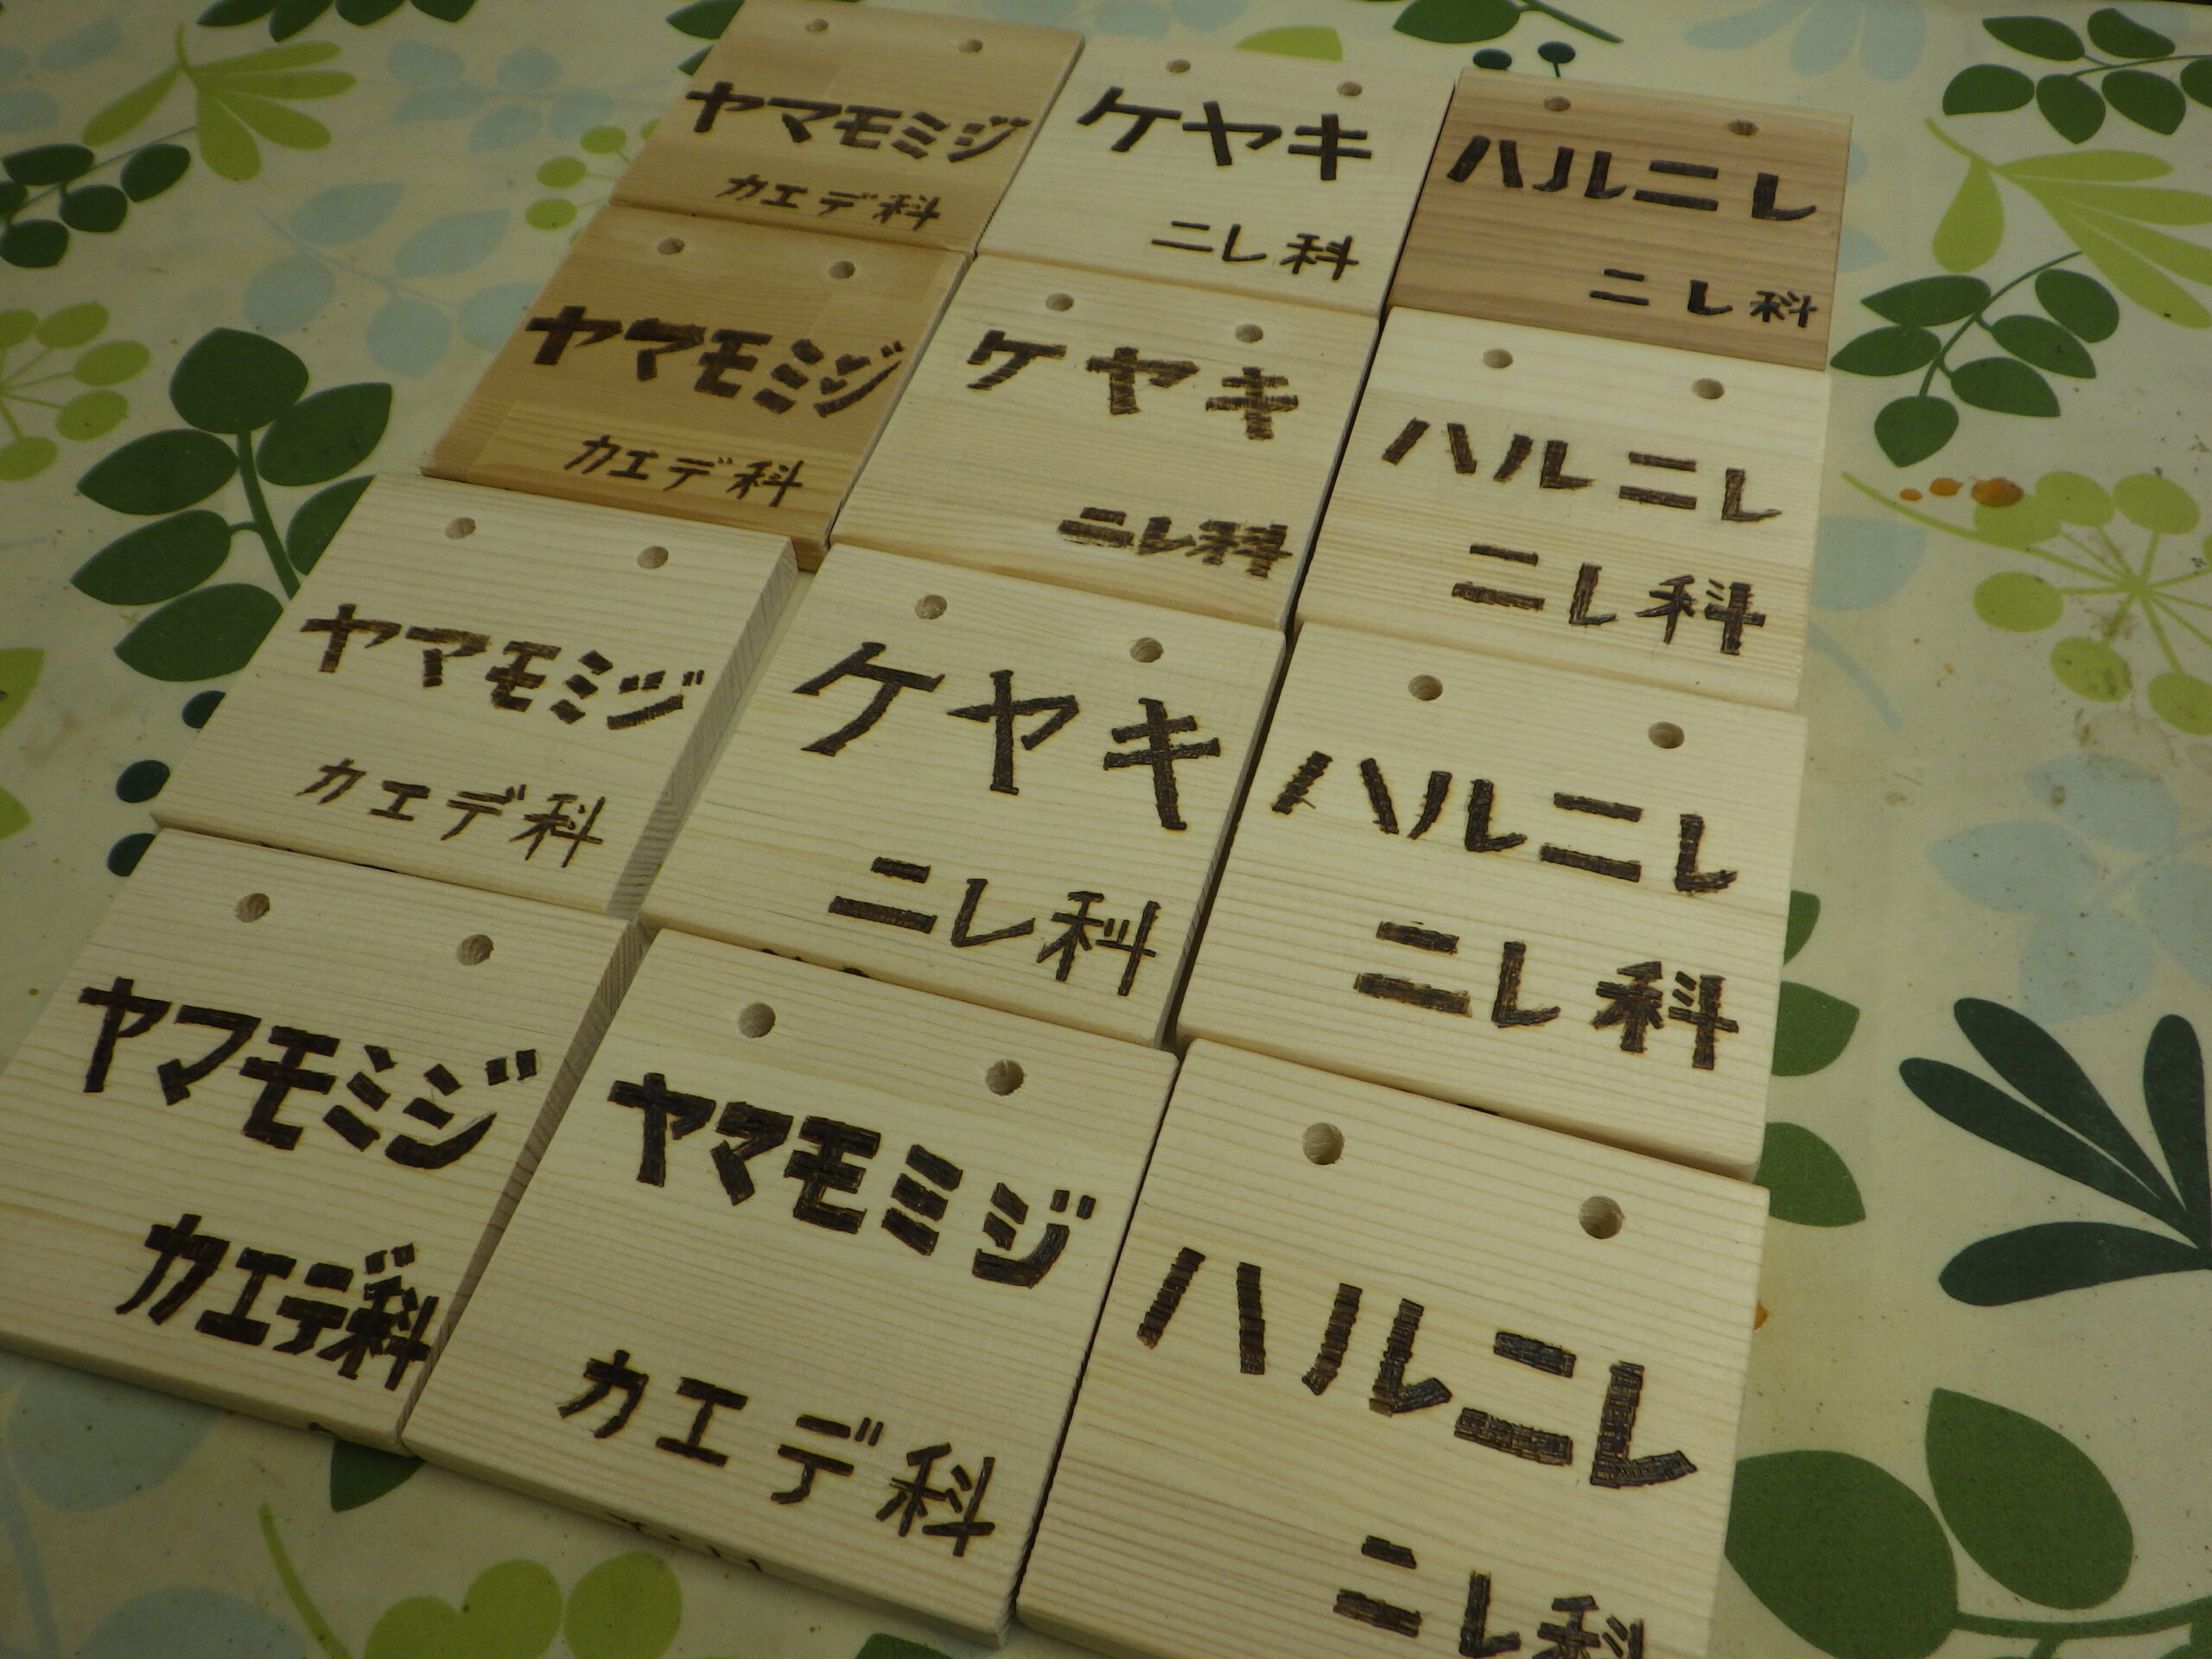 ヤマモミジ
カエデ科
ケヤキ
ニレ科
ハルニレ
ニレ科
ヤマモミジ
カエデ科
ケヤキ
ニレ科
ハルニレ
ニレ科
ヤマモミジ
カエデ科
ケヤキ
ニレ科
ハルニレ
ニレ科
ヤマモミジ
カエデ科
ヤマモミジ
カエデ科
ハルニレ
ニレ科